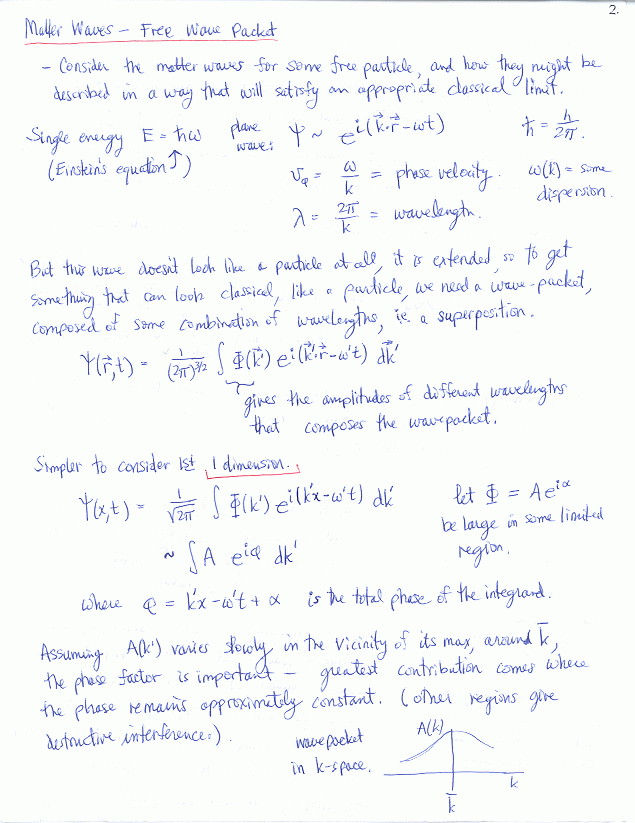 2.
Matter Waves - Free Wave Packet
- Consider the matter waves for some free particle, and how they might be
described in a way that will satisfy an appropriate classical limit.
Single energy E = ħω plane wave: ψ ~ e^{i(k⃗·r⃗-ωt)} ħ = h/2π.
(Einstein's equation ↑)
v_φ = ω/k = phase velocity. ω(k) = some dispersion.
λ = 2π/k = wavelength.
But this wave doesn't look like a particle at all, it is extended, so to get
something that can look classical, like a particle, we need a wave-packet,
composed of some combination of wavelengths, i.e. a superposition.
Ψ(r⃗,t) = 1/(2π)^{3/2} ∫ Φ(k⃗') e^{i(k⃗'·r⃗-ω't)} dk⃗'
gives the amplitudes of different wavelengths
that composes the wavepacket.
Simpler to consider 1st 1 dimension.
Ψ(x,t) = 1/√2π ∫ Φ(k') e^{i(k'x-ω't)} dk' let Φ = Ae^{iα}
be large in some limited
region.
~ ∫ A e^{iφ} dk'
where φ = k'x-ω't+α is the total phase of the integrand.
Assuming A(k') varies slowly in the vicinity of its max, around k̄,
the phase factor is important - greatest contribution comes where
the phase remains approximately constant. (other regions give
destructive interference.)
wavepacket
in k-space.
A(k)
k
k̄